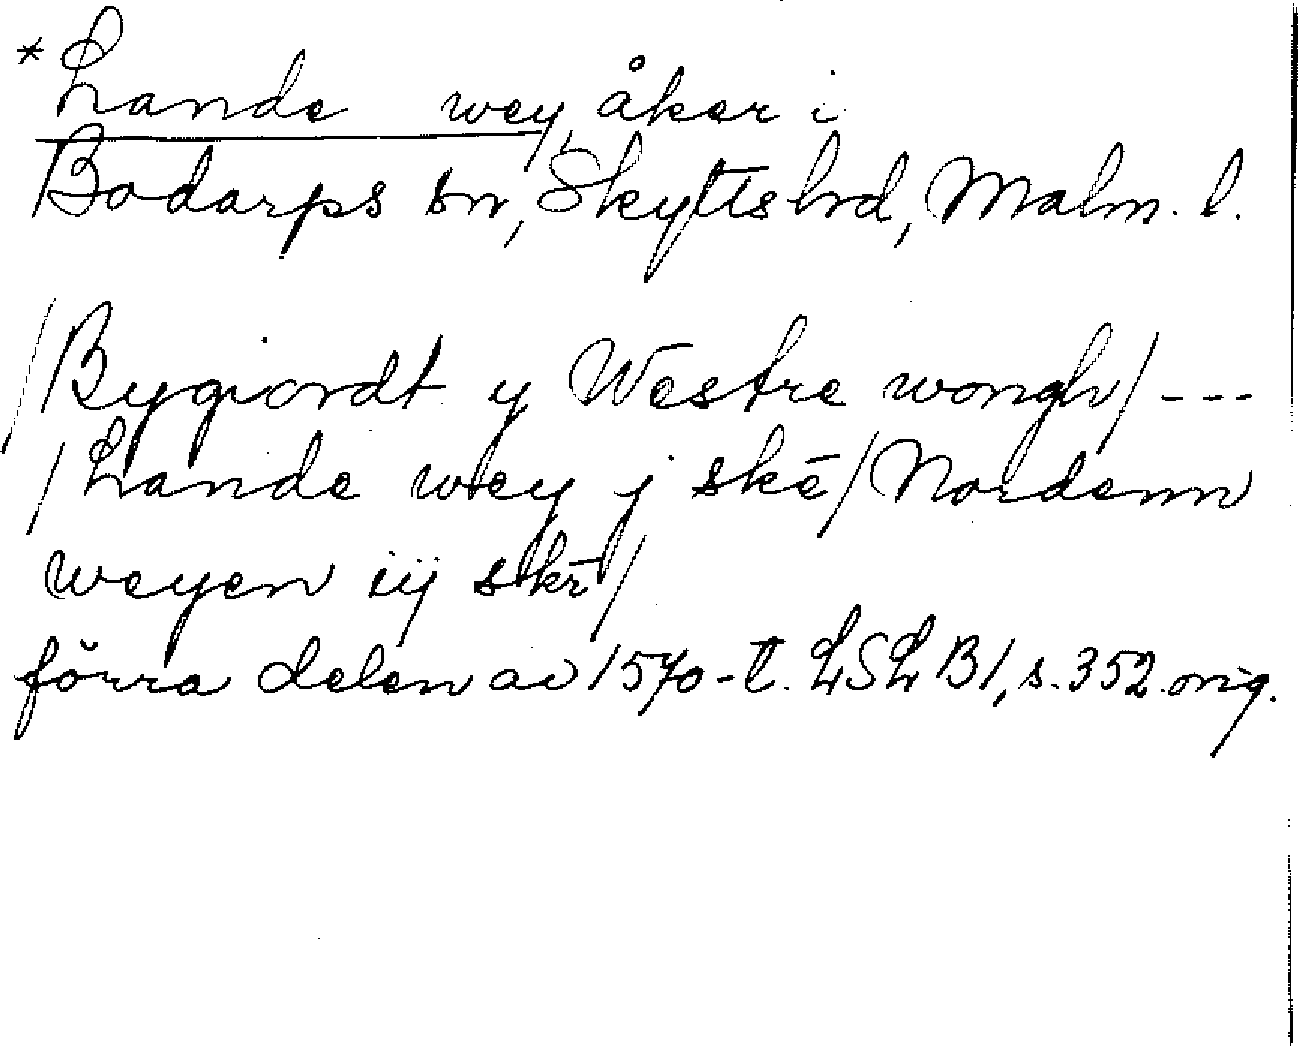 *Lande wey, åker i
Bodarps sn, Skytts hrd, Malm. l.
/Bygiordt y Westre wongh/ ---
/Lande wey j skē/ Nordenn
weyen iij skē/
förra delen av 1570-t. LSL B1, s. 352 orig.